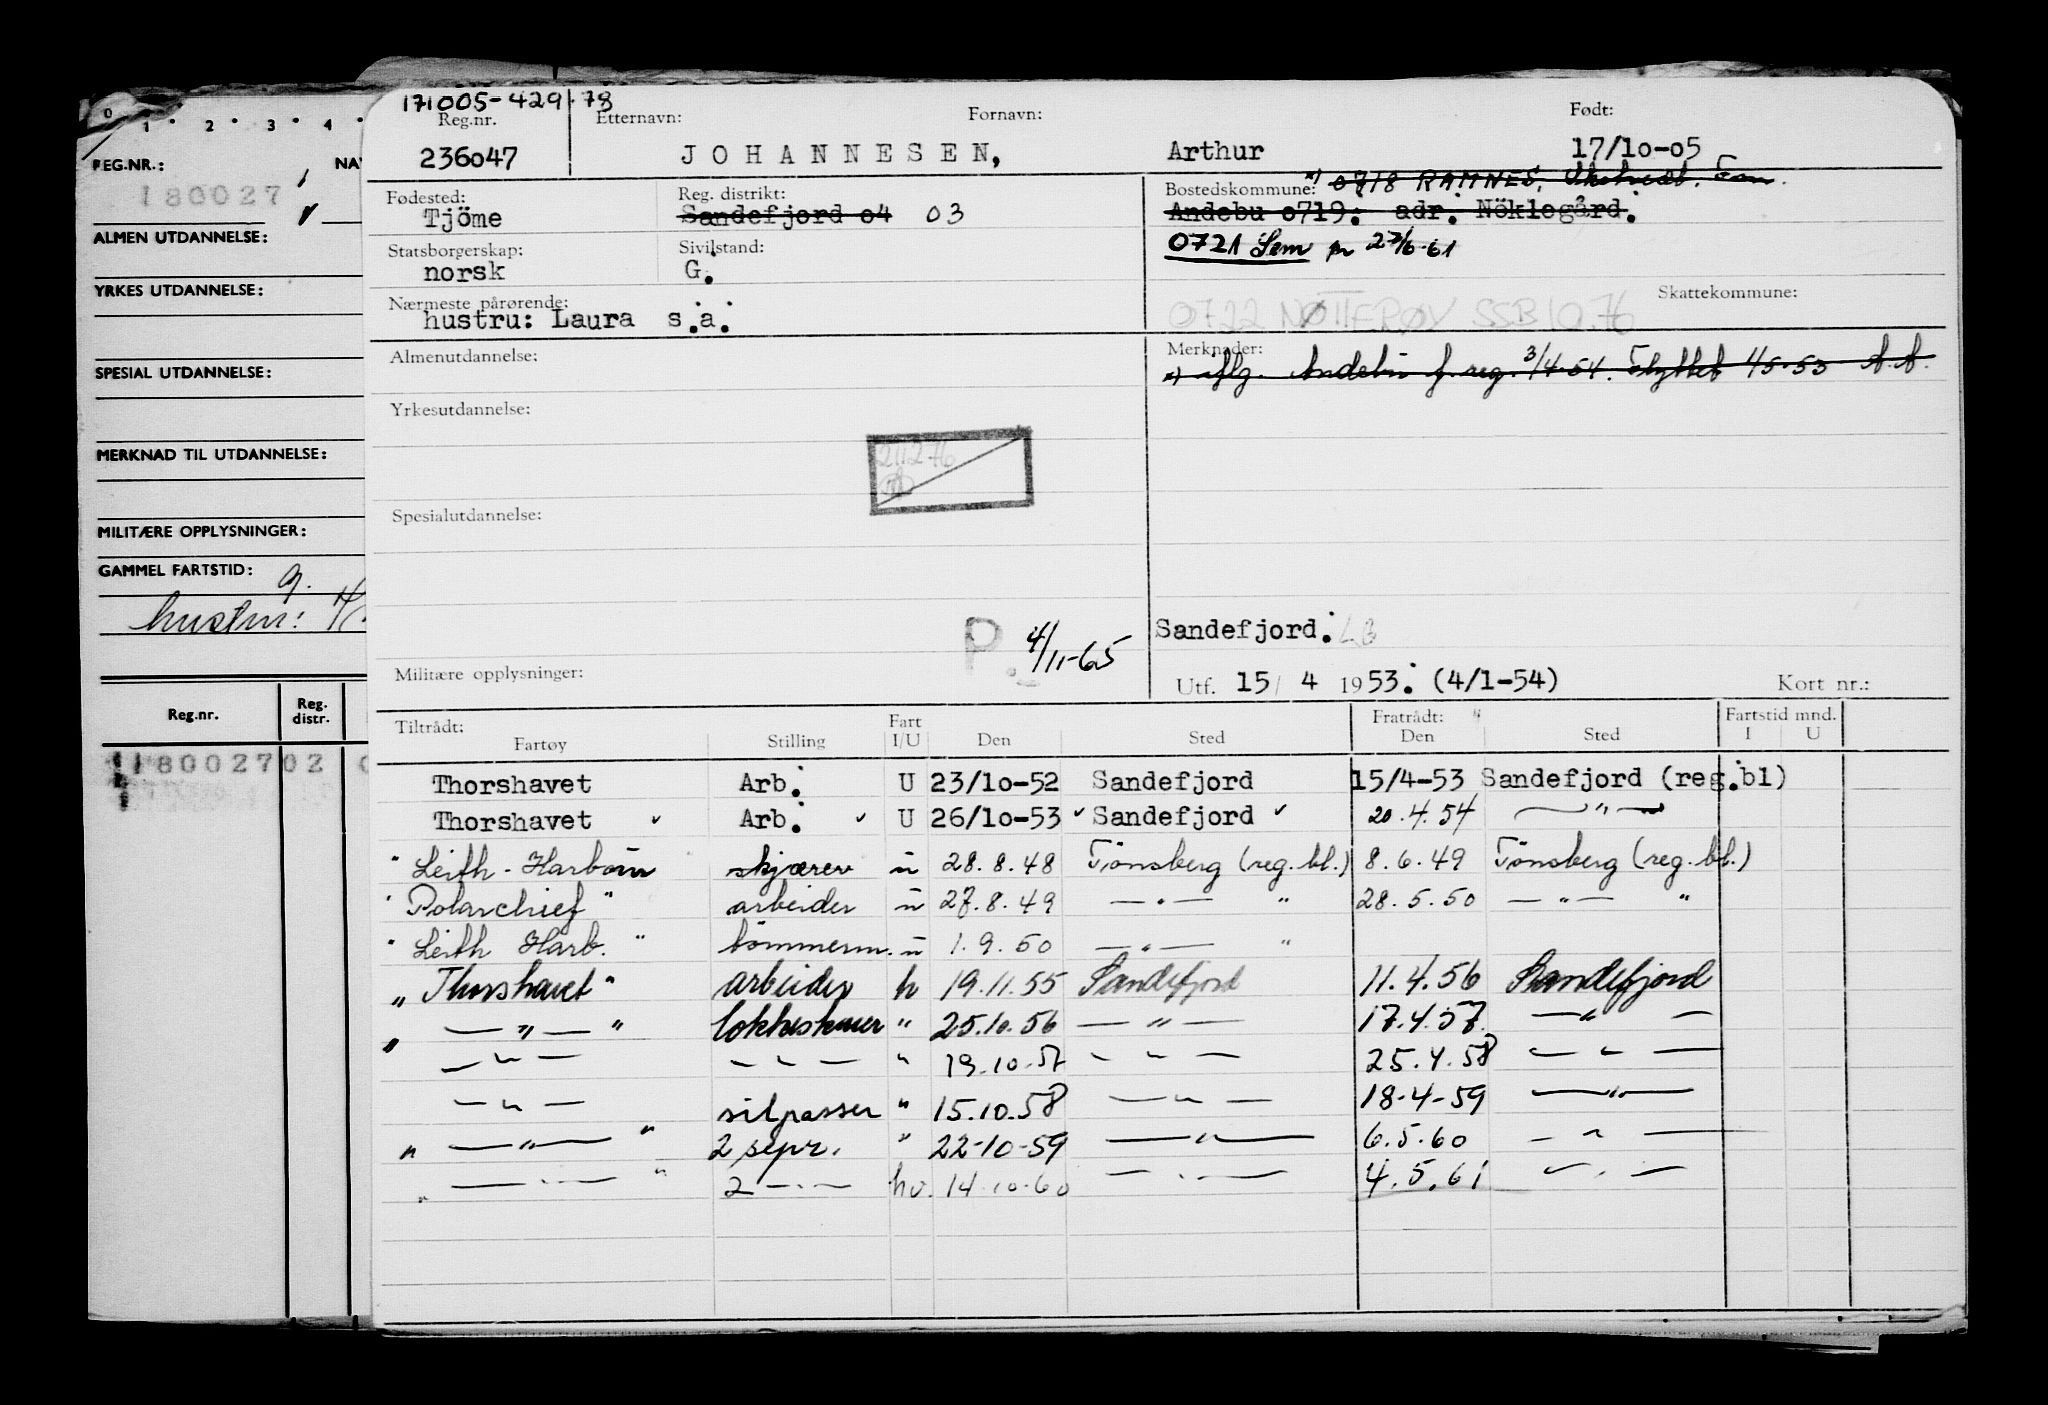 0 1 2 3 4
REG.NR.: NAV
180027
ALMEN UTDANNELSE:
YRKES UTDANNELSE:
SPESIAL UTDANNELSE:
MERKNAD TIL UTDANNELSE:
MILITÆRE OPPLYSNINGER:
GAMMEL FARTSTID: g.
hustru: H
Reg.nr. Reg. distr.
18002702
171005-429 78
Reg.nr. Etternavn: Fornavn: Født:
236o47 JOHANNESEN, Arthur 17/1o-o5
Fødested: Reg. distrikt: Bostedskommune: *) 0718 RAMNES,
Tjöme Sandefjord o4 03 Andebu o719: adr. Nöklegård.
Statsborgerskap: Sivilstand: 0721 Sem pr 27/6-61
norsk G.
Nærmeste pårørende: Skattekommune:
hustru: Laura s.a. 0722 NØTTERØY SSB 10.76
Almenutdannelse: Merknader:
*) iflg. Andebu f.reg. 3/4-54. Flyttet 1/5-53 A.A.
Yrkesutdannelse:
211276
Spesialutdannelse:
Sandefjord. LB
P. 4/11-65
Militære opplysninger: Utf. 15/4 1953. (4/1-54) Kort nr.:
Tiltrådt: Fart Fratrådt: Fartstid mnd.
Fartøy Stilling I/U Den Sted Den Sted I U
Thorshavet Arb. U 23/1o-52 Sandefjord 15/4-53 Sandefjord (reg.bl)
Thorshavet Arb. U 26/1o-53 Sandefjord 20.4.54 — " —
" Leith-Harbour skjærer u 28.8.48 Tönsberg (reg.bl.) 8.6.49 Tönsberg (reg.bl.)
" Polarchief " arbeider u 27.8.49 — " — " 28.5.50 — " — "
" Leith Harb. " tömmerm. u 1.9.50 — " — "
" Thorshavet " arbeider h 19.11.55 Sandefjord 11.4.56 Sandefjord
" — " — " " 25.10.56 — " — 17.4.57 — " —
— " — — " — " 19.10.57 — " — 25.4.58 — " —
— " — silpasser " 15.10.58 — " — 18-4-59 — " —
" — " — " 2 sepr. " 22-10-59 — " — 6.5.60 — " —
" — " — " 2 — " — hv. 14.10.60 — " — 4.5.61 — " —